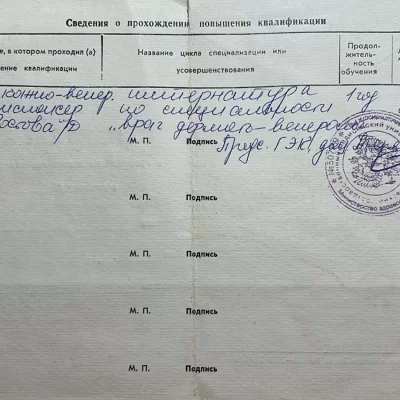 Сведения о прохождении повышения квалификации
е, в котором проходил (а)
ение квалификации
Название цикла специализации или
усовершенствования
Продол-
житель-
ность
обучения
кожно-венер. интернатура 1 год
по специальности
Ростова/Д „врач дермато-венеролог
М. П. Подпись
Пред. ГЭК, доц.
М. П. Подпись
М. П. Подпись
М. П. Подпись
М. П. Подпись